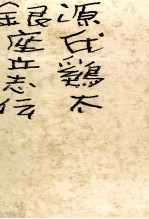 源氏鶏太
銀座立志伝